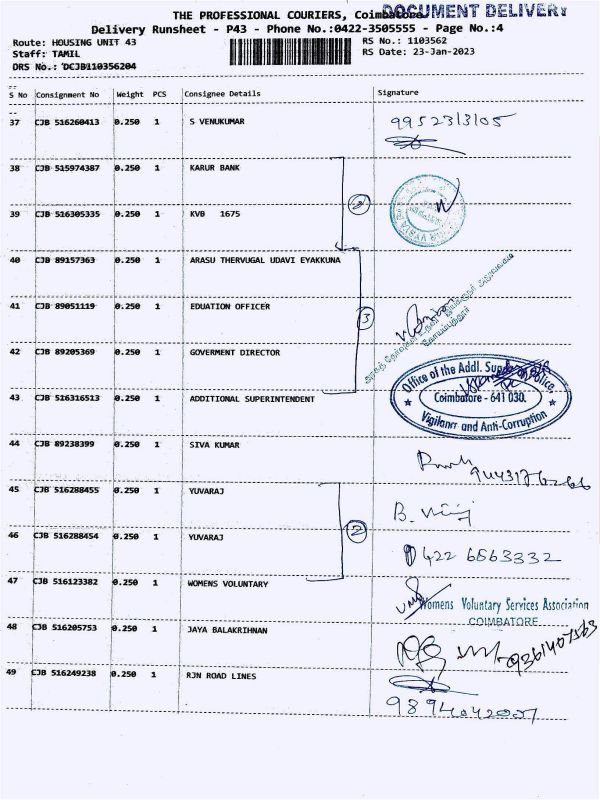 DOCUMENT DELIVERY
THE PROFESSIONAL COURIERS, Coimbatore
Delivery Runsheet - P43 - Phone No.:0422-3505555 - Page No.:4
Route: HOUSING UNIT 43 RS No.: 1103562
Staff: TAMIL RS Date: 23-Jan-2023
DRS No.: DCJB110356204
S No Consignment No Weight PCS Consignee Details Signature
37 CJB 516260413 0.250 1 S VENUKUMAR 9952313105
38 CJB 515974387 0.250 1 KARUR BANK
2
39 CJB 516305335 0.250 1 KVB 1675
40 CJB 89157363 0.250 1 ARASU THERVUGAL UDAVI EYAKKUNA
41 CJB 89051119 0.250 1 EDUATION OFFICER
3
42 CJB 89205369 0.250 1 GOVERMENT DIRECTOR
Office of the Addl. Supdt. of Police,
43 CJB 516316513 0.250 1 ADDITIONAL SUPERINTENDENT Coimbatore - 641 030.
Vigilance and Anti-Corruption
44 CJB 89238399 0.250 1 SIVA KUMAR
45 CJB 516288455 0.250 1 YUVARAJ
2
46 CJB 516288454 0.250 1 YUVARAJ 0422 6563332
47 CJB 516123382 0.250 1 WOMENS VOLUNTARY
Womens Voluntary Services Association
COIMBATORE
48 CJB 516205753 0.250 1 JAYA BALAKRIHNAN
49 CJB 516249238 0.250 1 RJN ROAD LINES